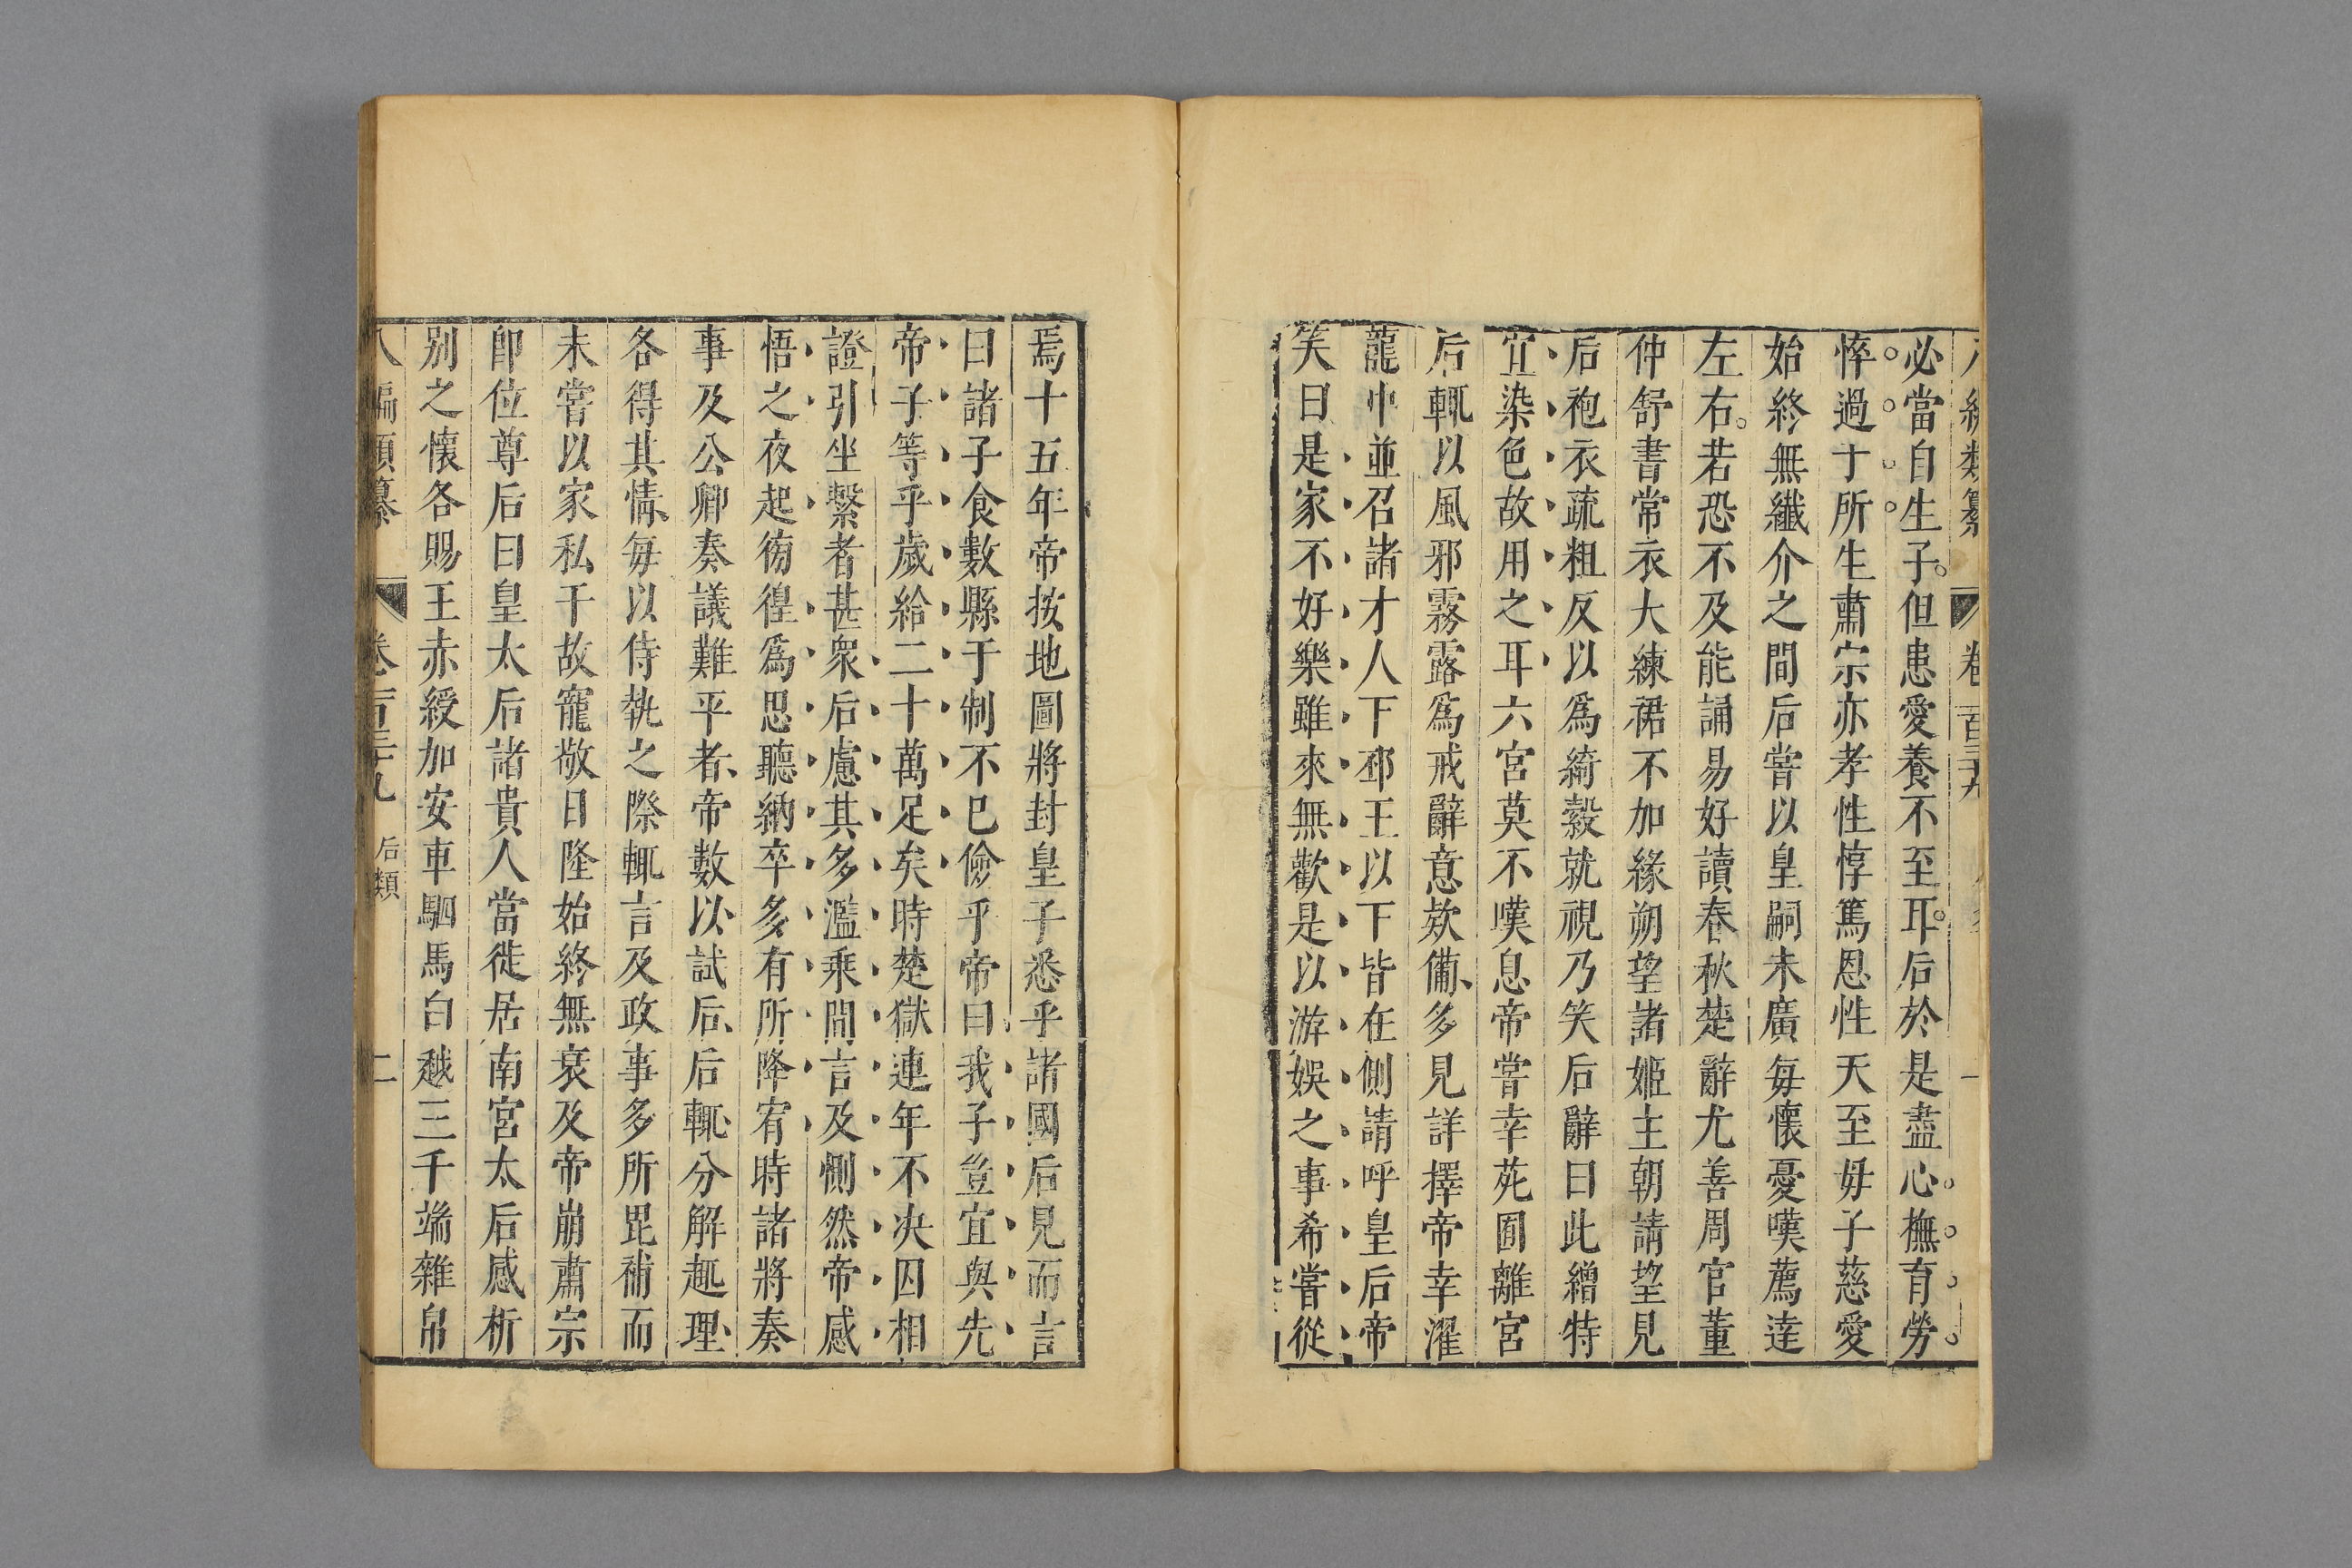 必當自生子但患愛養不至耳后於是盡心撫育勞
悴過于所生肅宗亦孝性惇篤恩性天至毋子慈愛
始終無纖介之間后嘗以皇嗣未廣每懷憂嘆薦達
左右若恐不及能誦易好讀春秋楚辭尤善周官董
仲舒書常衣大練裙不加緣朔望諸姬主朝請望見
后袍衣疏粗反以爲綺縠就視乃笑后辭曰此繒特
宜染色故用之耳六宮莫不嘆息帝嘗幸苑囿離宮
后輒以風邪霧露爲戒辭意欵備多見詳擇帝幸濯
龍中並召諸才人下邳王以下皆在側請呼皇后帝
笑曰是家不好樂雖來無歡是以游娛之事希嘗從
焉十五年帝按地圖將封皇子悉乎諸國后見而言
曰諸子食數縣于制不已儉乎帝曰我子豈宜與先
帝子等乎歲給二十萬足矣時楚獄連年不决囚相
證引坐繫者甚衆后慮其多濫乘間言及惻然帝感
悟之夜起徬徨爲思聽納卒多有所降宥時諸將奏
事及公卿奏議難平者帝數以試后后輒分解趣理
各得其情每以侍執之際輒言及政事多所毘補而
未嘗以家私干故寵敬日隆始終無衰及帝崩肅宗
卽位尊后曰皇太后諸貴人當徙居南宮太后感析
別之懷各賜王赤綬加安車駟馬白越三千端雜帛
八編類纂 卷一百三十九 后類 二